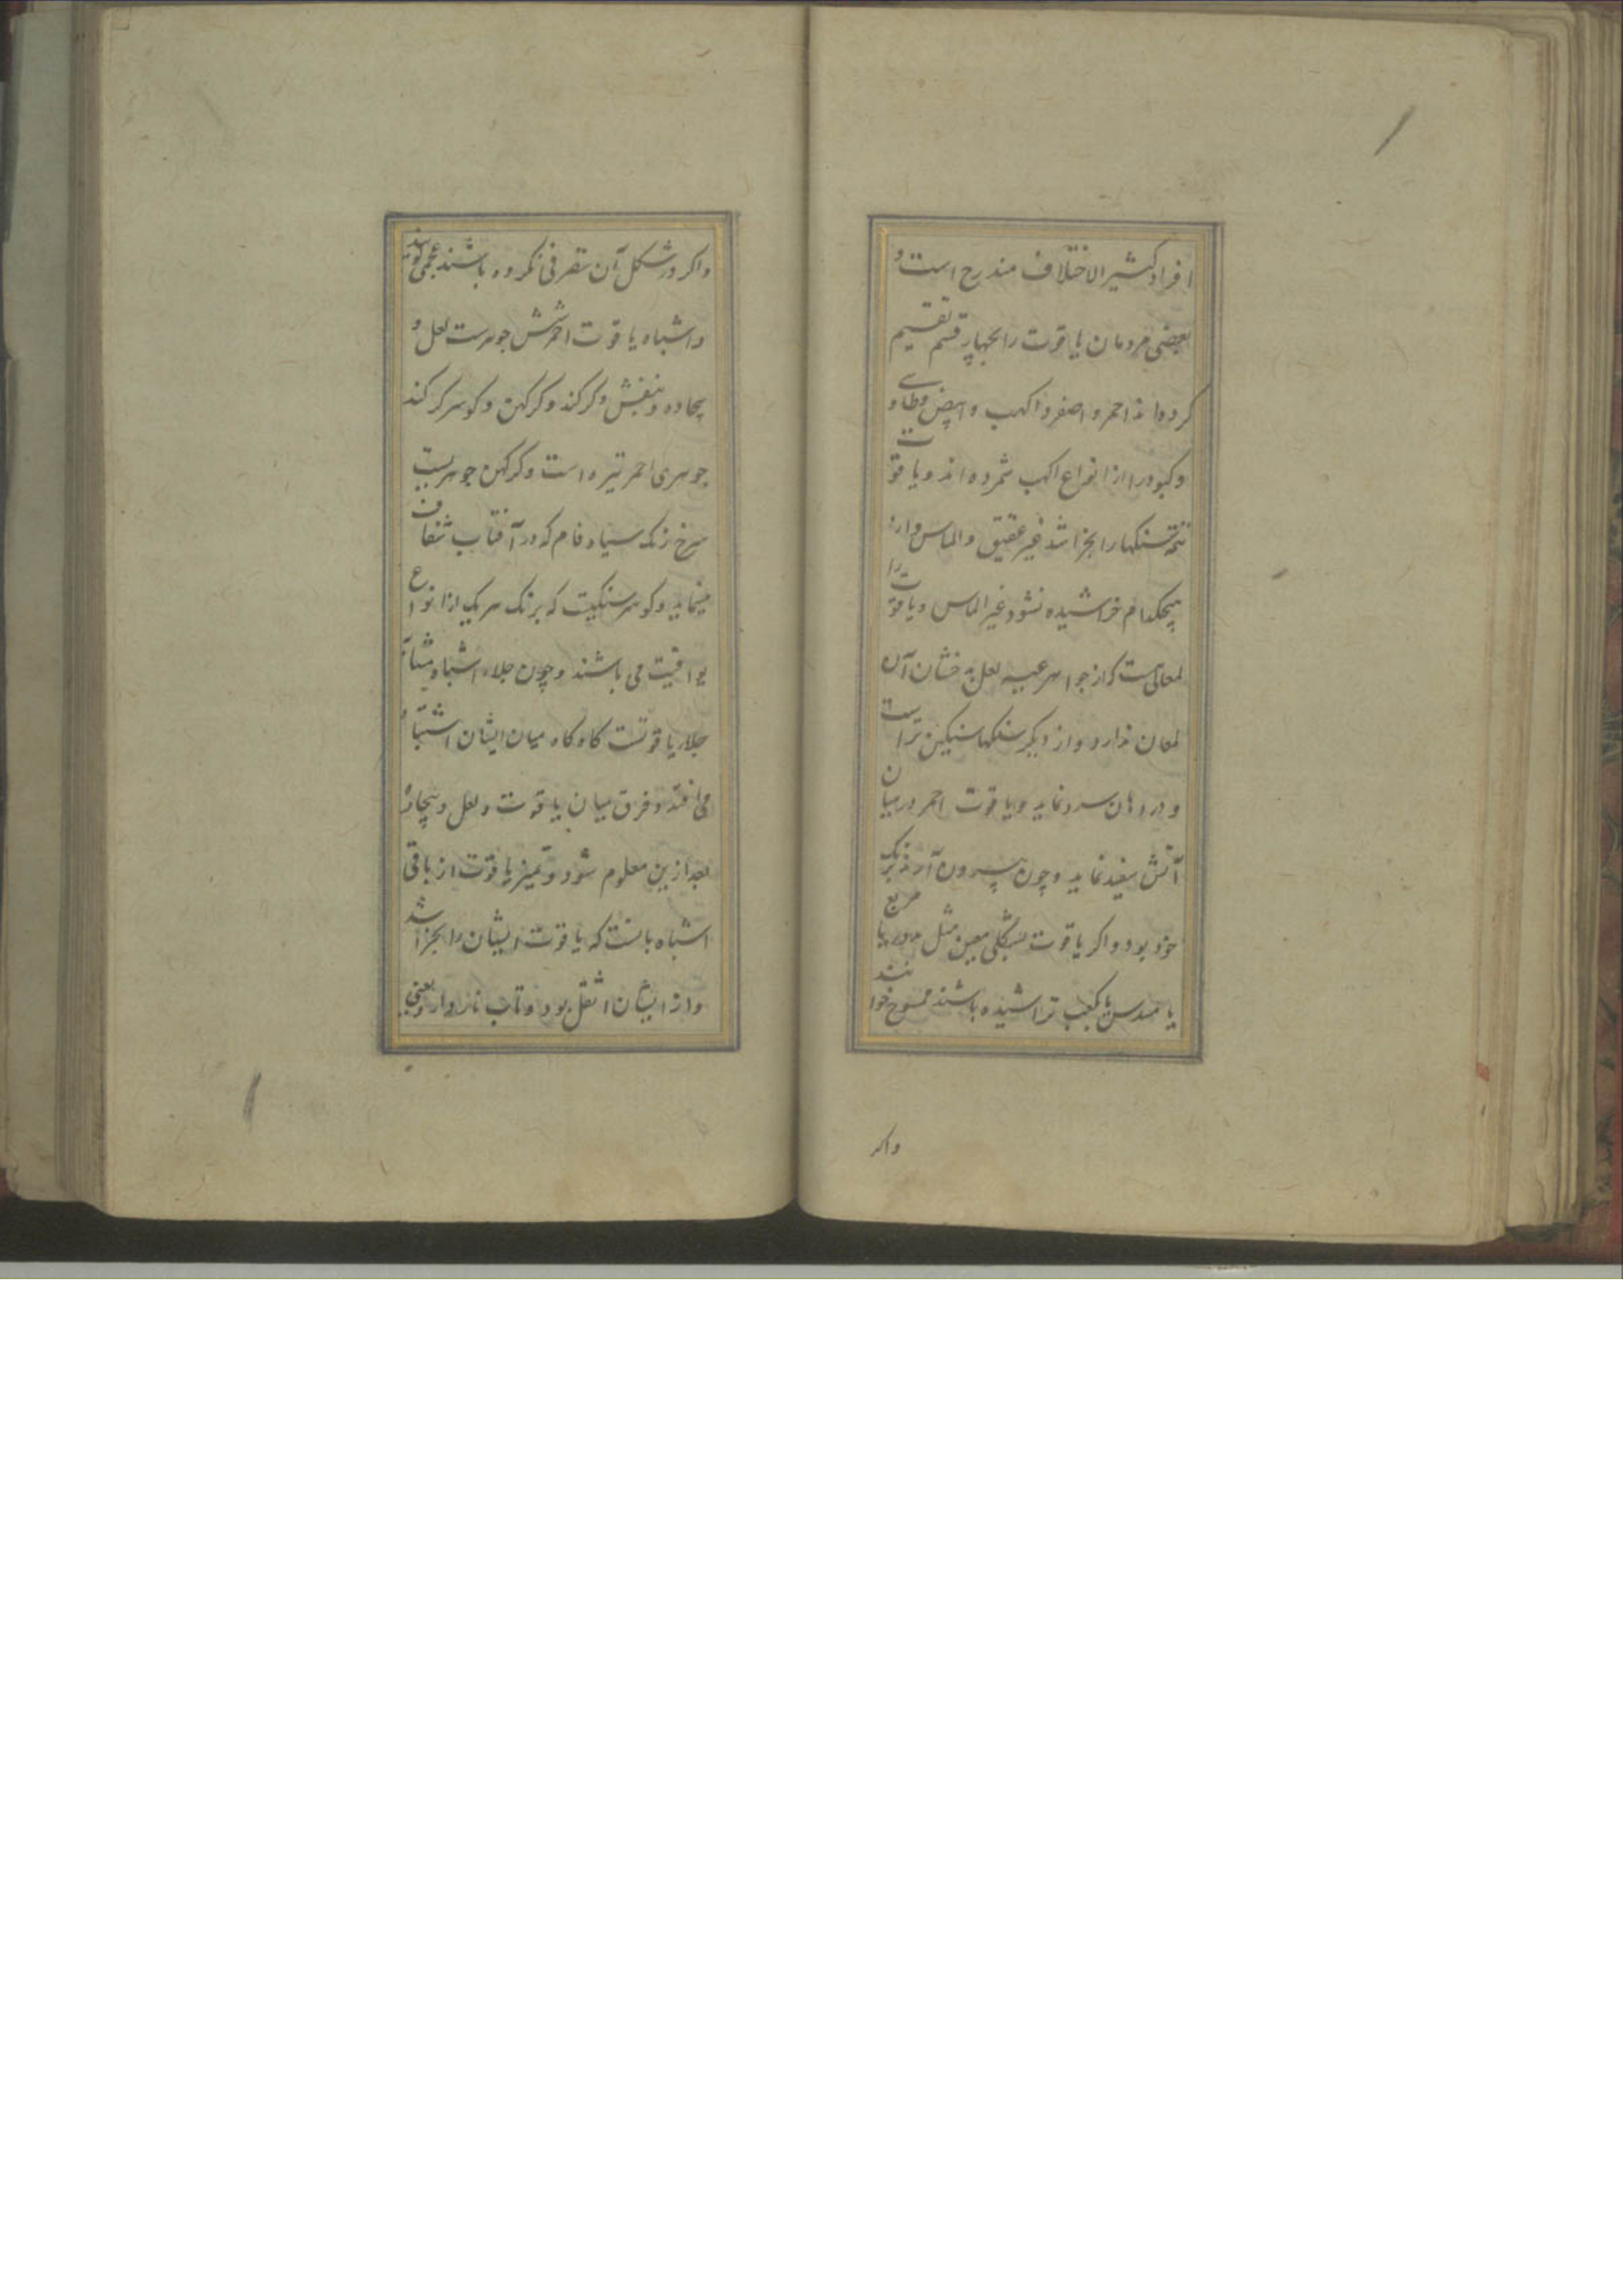 افراد كثير الاختلاف مندرج است و
بعضی مردمان یاقوت را بچهار قسم تقسیم
کرده‌اند احمر و اصفر و اکهب و ابیض و طاوسی
و کبود را از انواع اکهب شمرده اند و یاقوت
همه سنکها را بخراشد غیر عقیق والماس و از
هیچکدام خراشیده نشود غیر الماس و یاقوت را
لمعانیست که از جواهر غیر لعل بدخشان آن
لمعان ندارد و از دیکر سنکها سنکین تر است
و در دهان سرد نماید و یاقوت احمر در میان
آتش سفید نماید و چون بیرون آرند برنک
خود بود و اکر یاقوت بشکلی معین مثل مربع
یا مسدس یا مکعب تراشیده باشند ممسوح خوانند
واکر
واکر در شکل آن تصرفی نکرده باشند عجمی کویند
و اشباه یاقوت احمر شش جوهرست لعل و
بیجاده و بنفش و کرکند و کرکهن و کوهر کرکند
جوهری احمر تیره است و کرکهن جوهریست
سرخ رنک سیاه فام که در آفتاب شفاف
مینماید و کوهر سنکیست که برنک هر یک از انواع
یواقیت می باشند و چون جلاء اشباه مشابه
جلاء یاقوتست کاه کاه میان ایشان اشتباه
می افتد و فرق میان یاقوت و لعل و بیجاده
بعد ازین معلوم شود و تمیز یاقوت از باقی
اشباه بانست که یاقوت ایشان را بخراشد
و از ایشان اثقل بود و تاب نار دارد یعنی